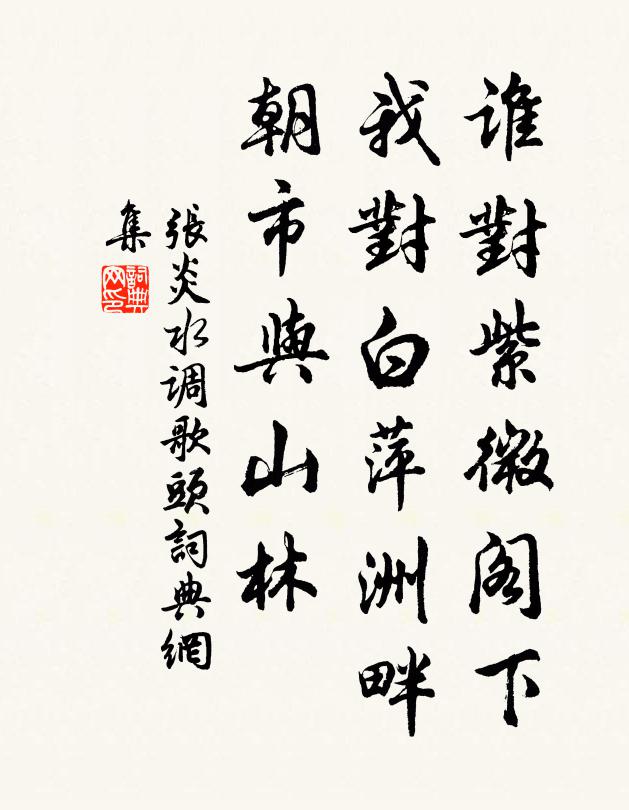 谁對紫微阁下
我對白萍洲畔
朝市與山林
張炎水调歌頭詞典網
集
詞典网印